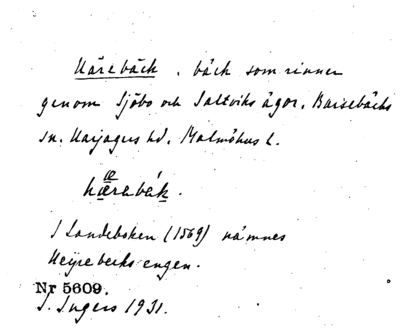 Härebäck, bäck som rinner
genom Sjöbo och Saltviks ägor. Barsebäcks
sn. Harjagers hd. Malmöhus l.
hærabäk.
æ
I Landeboken (1569) nämnes
Heyrebecks engen.
Nr 5609.
I. Ingers 1931.